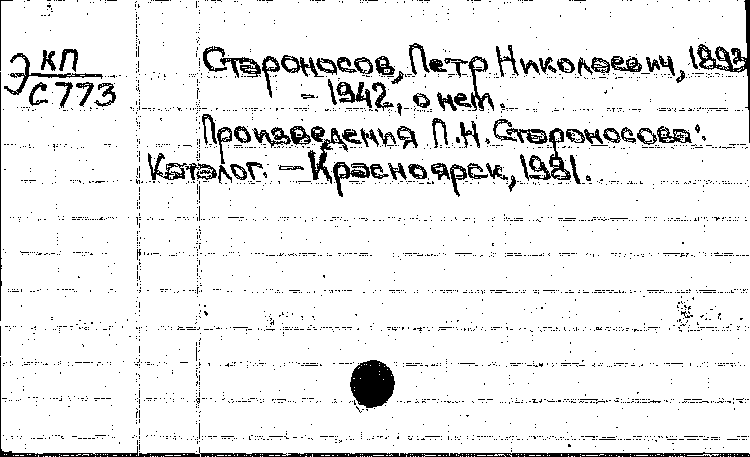 Э КП
С773
Староносов, Петр Николаевич, 1893
- 1942, о нем.
Произведения П.Н. Староносова:
Каталог. – Красноярск, 1981.